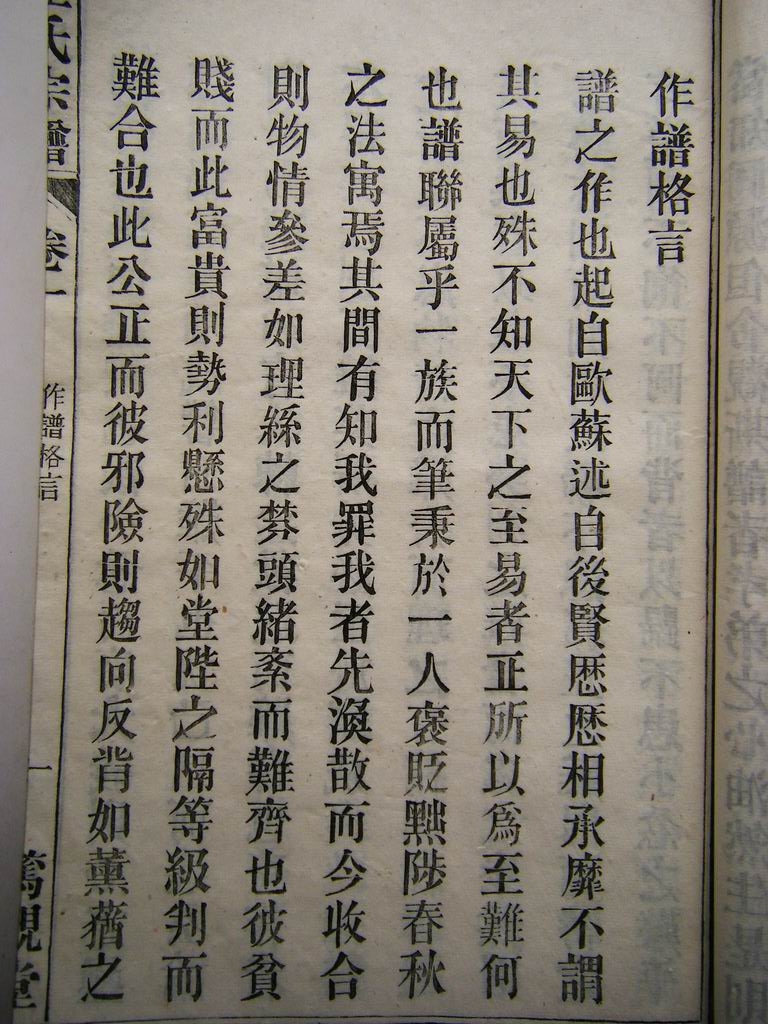 作譜格言
譜之作也起自歐蘇述自後賢歷歷相承靡不謂
其易也殊不知天下之至易者正所以爲至難何
也譜聯屬乎一族而筆秉於一人褒貶黜陟春秋
之法寓焉其間有知我罪我者先渙散而今收合
則物情參差如理絲之棼頭緒紊而難齊也彼貧
賤而此富貴則勢利懸殊如堂陛之隔等級判而
難合也此公正而彼邪險則趨向反背如薰蕕之
氏宗譜
卷一
作譜格言
一
篤親堂